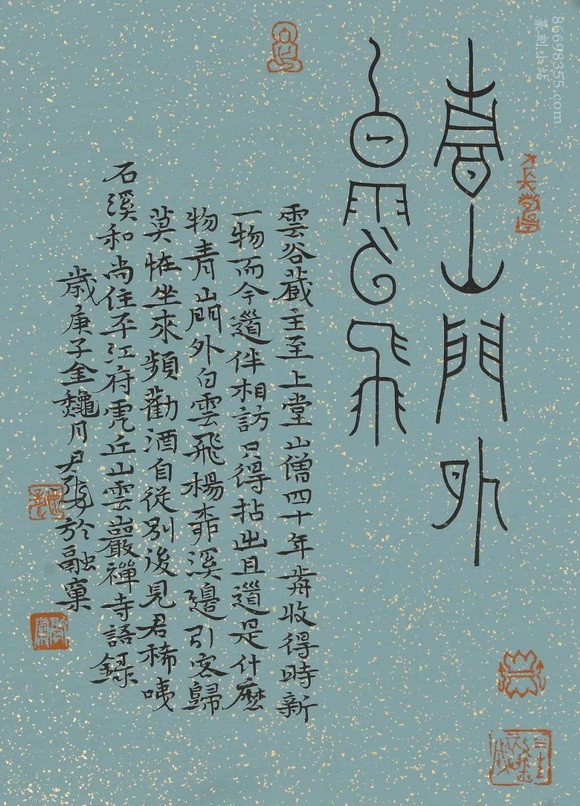 青山門外
白雲飛
雲谷藏主至上堂山僧四十年歬收得時新
一物而今道伴相訪只得拈出且道是什麼
物青山門外白雲飛楊桺溪邊引客歸
莫恠坐來頻勸酒自從別後見君稀咦
石溪和尚住平江府虎丘山雲巖禪寺語録
歲庚子金龝月尹於融窠
86698355.com